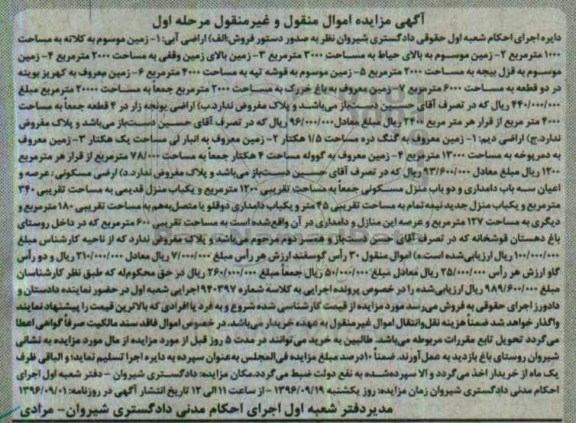 آگهی مزایده اموال منقول و غیرمنقول مرحله اول
دایره اجرای احکام شعبه اول حقوقی دادگستری شیروان نظر به صدور دستور فروش:الف) اراضی آبی: ۱- زمین موسوم به کلاته به مساحت
۱۰۰۰ مترمربع ۲- زمین موسوم به بالای حیاط به مساحت ۳۰۰۰ مترمربع ۳- زمین بالای زمین وقفی به مساحت ۲۰۰۰ مترمربع ۴- زمین
موسوم به قزل بیجه به مساحت ۲۰۰۰ مترمربع ۵- زمین موسوم به قوشه تپه به مساحت ۴۰۰۰ مترمربع ۶- زمین معروف به کهریز بویته
در دو قطعه به مساحت ۶۰۰۰ مترمربع ۷- زمین معروف به باغ خررک به مساحت ۲۰۰۰ مترمربع جمعاً به مساحت ۲۰۰۰۰ مترمربع مبلغ
۴۴۰/۰۰۰/۰۰۰ ریال که در تصرف آقای حسین دست‌باز می‌باشد و پلاک مفروض ندارد.ب) اراضی یونجه زار در ۴ قطعه جمعاً به مساحت
۴۰۰۰ مترمربع از قرار هر متر مربع ۲۴۰۰ ریال مبلغ معادل ۹۶/۰۰۰/۰۰۰ ریال که در تصرف آقای حسین دست‌باز می‌باشد و پلاک مفروض
ندارد.ج) اراضی دیم: ۱- زمین معروف به گنگ دره مساحت ۱/۵ هکتار ۲- زمین معروف به انبار لی مساحت یک هکتار ۳- زمین معروف
به دمرپوخه به مساحت ۱۳۰۰۰ مترمربع ۴- زمین معروف به گووله مساحت ۴ هکتار جمعاً به مساحت ۷۸/۰۰۰ مترمربع از قرار هر مترمربع
۱۲۰۰ ریال مبلغ معادل ۹۳/۶۰۰/۰۰۰ ریال که در تصرف آقای حسین دست‌باز می‌باشد و پلاک مفروض ندارد.د) ارضی مسکونی: عرصه و
اعیان سه باب دامداری و دو باب منزل مسکونی جمعاً به مساحت تقریبی ۱۲۰۰ مترمربع و یکباب منزل قدیمی به مساحت تقریبی ۳۴۰
مترمربع و یکباب منزل جدید نیمه تمام به مساحت تقریبی ۴۵ متر و یکباب دامداری دوقلو یا متصل‌به‌هم به مساحت تقریبی ۱۸۰ مترمربع و
دیگری به مساحت ۱۲۷ مترمربع و عرصه این منازل و دامداری در آن واقع‌شده است به مساحت تقریبی ۶۰۰ مترمربع که در داخل روستای
باغ دهستان قوشخانه که در تصرف آقای حسین دست‌باز و همسر دوم مرحوم می‌باشد و پلاک مفروض ندارد که از ناحیه کارشناس مبلغ
۱۰۰/۰۰۰/۰۰۰ ریال ارزیابی‌شده است.ه) اموال منقول ۳۰ رأس گوسفند ارزش هر رأس مبلغ ۷/۰۰۰/۰۰۰ ریال معادل ۲۱۰/۰۰۰/۰۰۰ و دو رأس
گاو ارزش هر رأس ۲۵/۰۰۰/۰۰۰ ریال معادل مبلغ ۵۰/۰۰۰/۰۰۰ ریال جمعاً مبلغ ۲۶۰/۰۰۰/۰۰۰ ریال در حق محکوم‌له که طبق نظر کارشناسان
مبلغ ۹۸۹/۶۰۰/۰۰۰ ریال ارزیابی‌شده را در خصوص پرونده اجرایی به کلاسه شماره ۹۴۰۳۹۷ اجرایی شعبه اول در حضور نماینده دادستان و
دادورز اجرای حقوقی به فروش می‌رسد مورد مزایده از قیمت کارشناسی شده شروع و به فرد یا افرادی که بالاترین قیمت را پیشنهاد نمایند
واگذار خواهد شد ضمناً هزینه نقل‌وانتقال اموال غیرمنقول به عهده خریدار می‌باشد. در خصوص اموال فاقد سند مالکیت صرفاً گواهی اعطا
می‌گردد تحویل تابع مقررات مربوطه می‌باشد. طالبین به خرید می‌توانند در مدت ۵ روز قبل از مورد مزایده از مال مورد مزایده به نشانی
شیروان روستای باغ بازدید به عمل آورند. ضمناً ۱۰درصد مبلغ مزایده فی‌المجلس به‌عنوان سپرده به دایره اجرا تسلیم نماید؛ و الباقی ظرف
یک ماه از خریدار اخذ می‌گردد و الا سپرده‌شده به نفع دولت ضبط می‌گردد.مکان مزایده: دادگستری شیروان - دفتر شعبه اول اجرای
احکام مدنی دادگستری شیروان زمان مزایده: روز یکشنبه ۱۳۹۶/۰۹/۱۹ - از ساعت ۱۱ الی ۱۲ تاریخ انتشار آگهی در روزنامه: ۱۳۹۶/۰۹/۰۱
مدیردفتر شعبه اول اجرای احکام مدنی دادگستری شیروان- مرادی